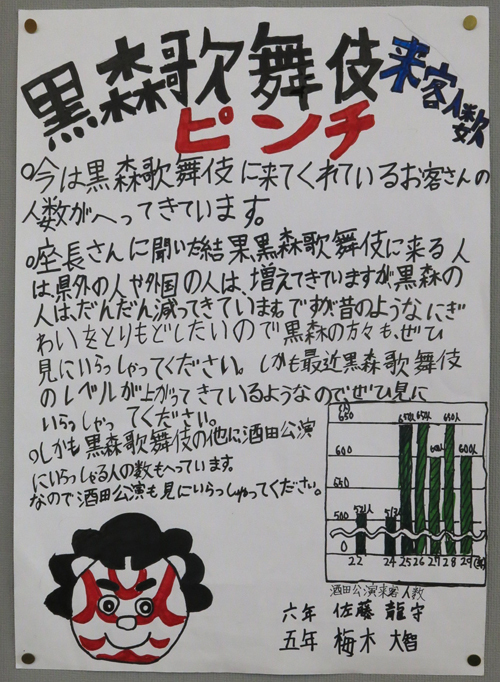 黒森歌舞伎来客人数
ピンチ
○今は黒森歌舞伎に来てくれているお客さんの
人数がへってきています。
○座長さんに聞いた結果、黒森歌舞伎に来る人
は県外の人や外国の人は、増えてきていますが、黒森の
人は、だんだん減ってきています。ですが昔のようなにぎ
わいをとりもどしたいので黒森の方々も、ぜひ
見にいらっしゃってください。しかも最近黒森歌舞伎
のレベルが上がってきているようなのでぜひ見に
いらっしゃってください。
○しかも黒森歌舞伎の他に酒田公演
にいらっしゃる人の数もへっています。
なので酒田公演も見にいらっしゃってください。
(人)
650
600
550
500
0
654人
650人
600人
22 24 25 26 27 28 29(年)
酒田公演来客人数
六年 佐藤 龍守
五年 梅木 大智